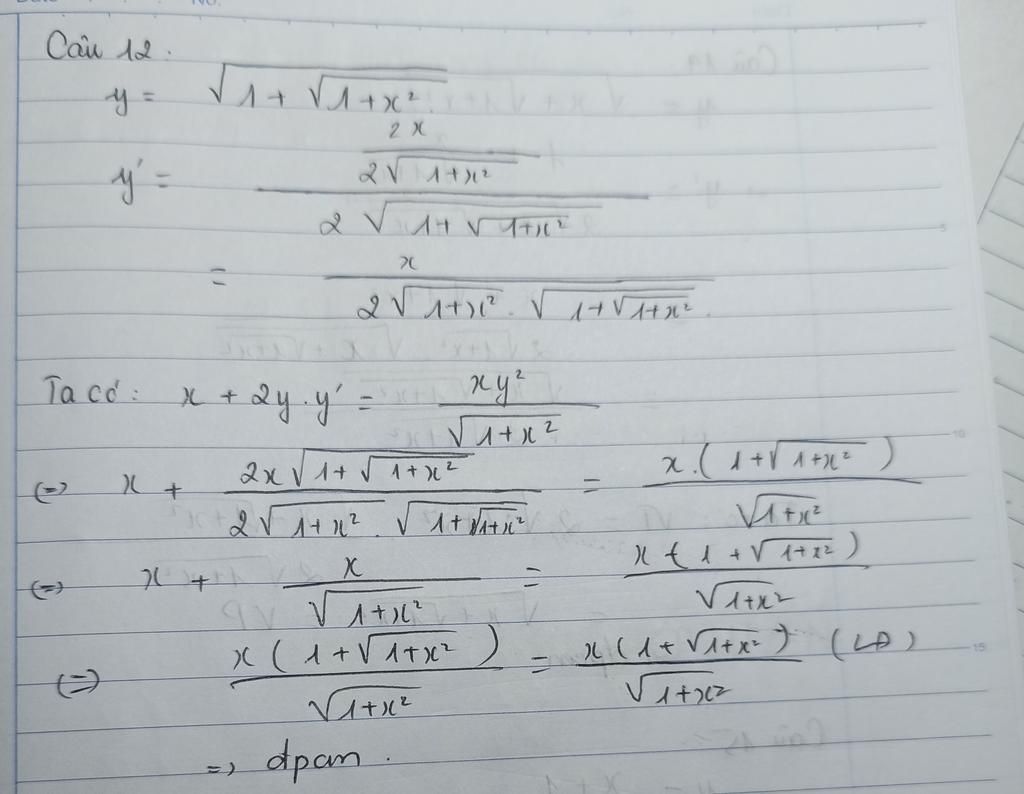 Câu 12.
y = √(1 + √(1+x²))
y' = (2x / (2√(1+x²))) / (2√(1+√(1+x²)))
= x / (2√(1+x²) . √(1+√(1+x²)))
Ta có: x + 2y.y' = xy² / √(1+x²)
(=) x + (2x√(1+√(1+x²))) / (2√(1+x²) . √(1+√(1+x²))) = x.(1+√(1+x²)) / √(1+x²)
(=) x + x / √(1+x²) = x(1+√(1+x²)) / √(1+x²)
(=) x(1+√(1+x²)) / √(1+x²) = x(1+√(1+x²)) / √(1+x²) (LĐ)
=> đpcm.